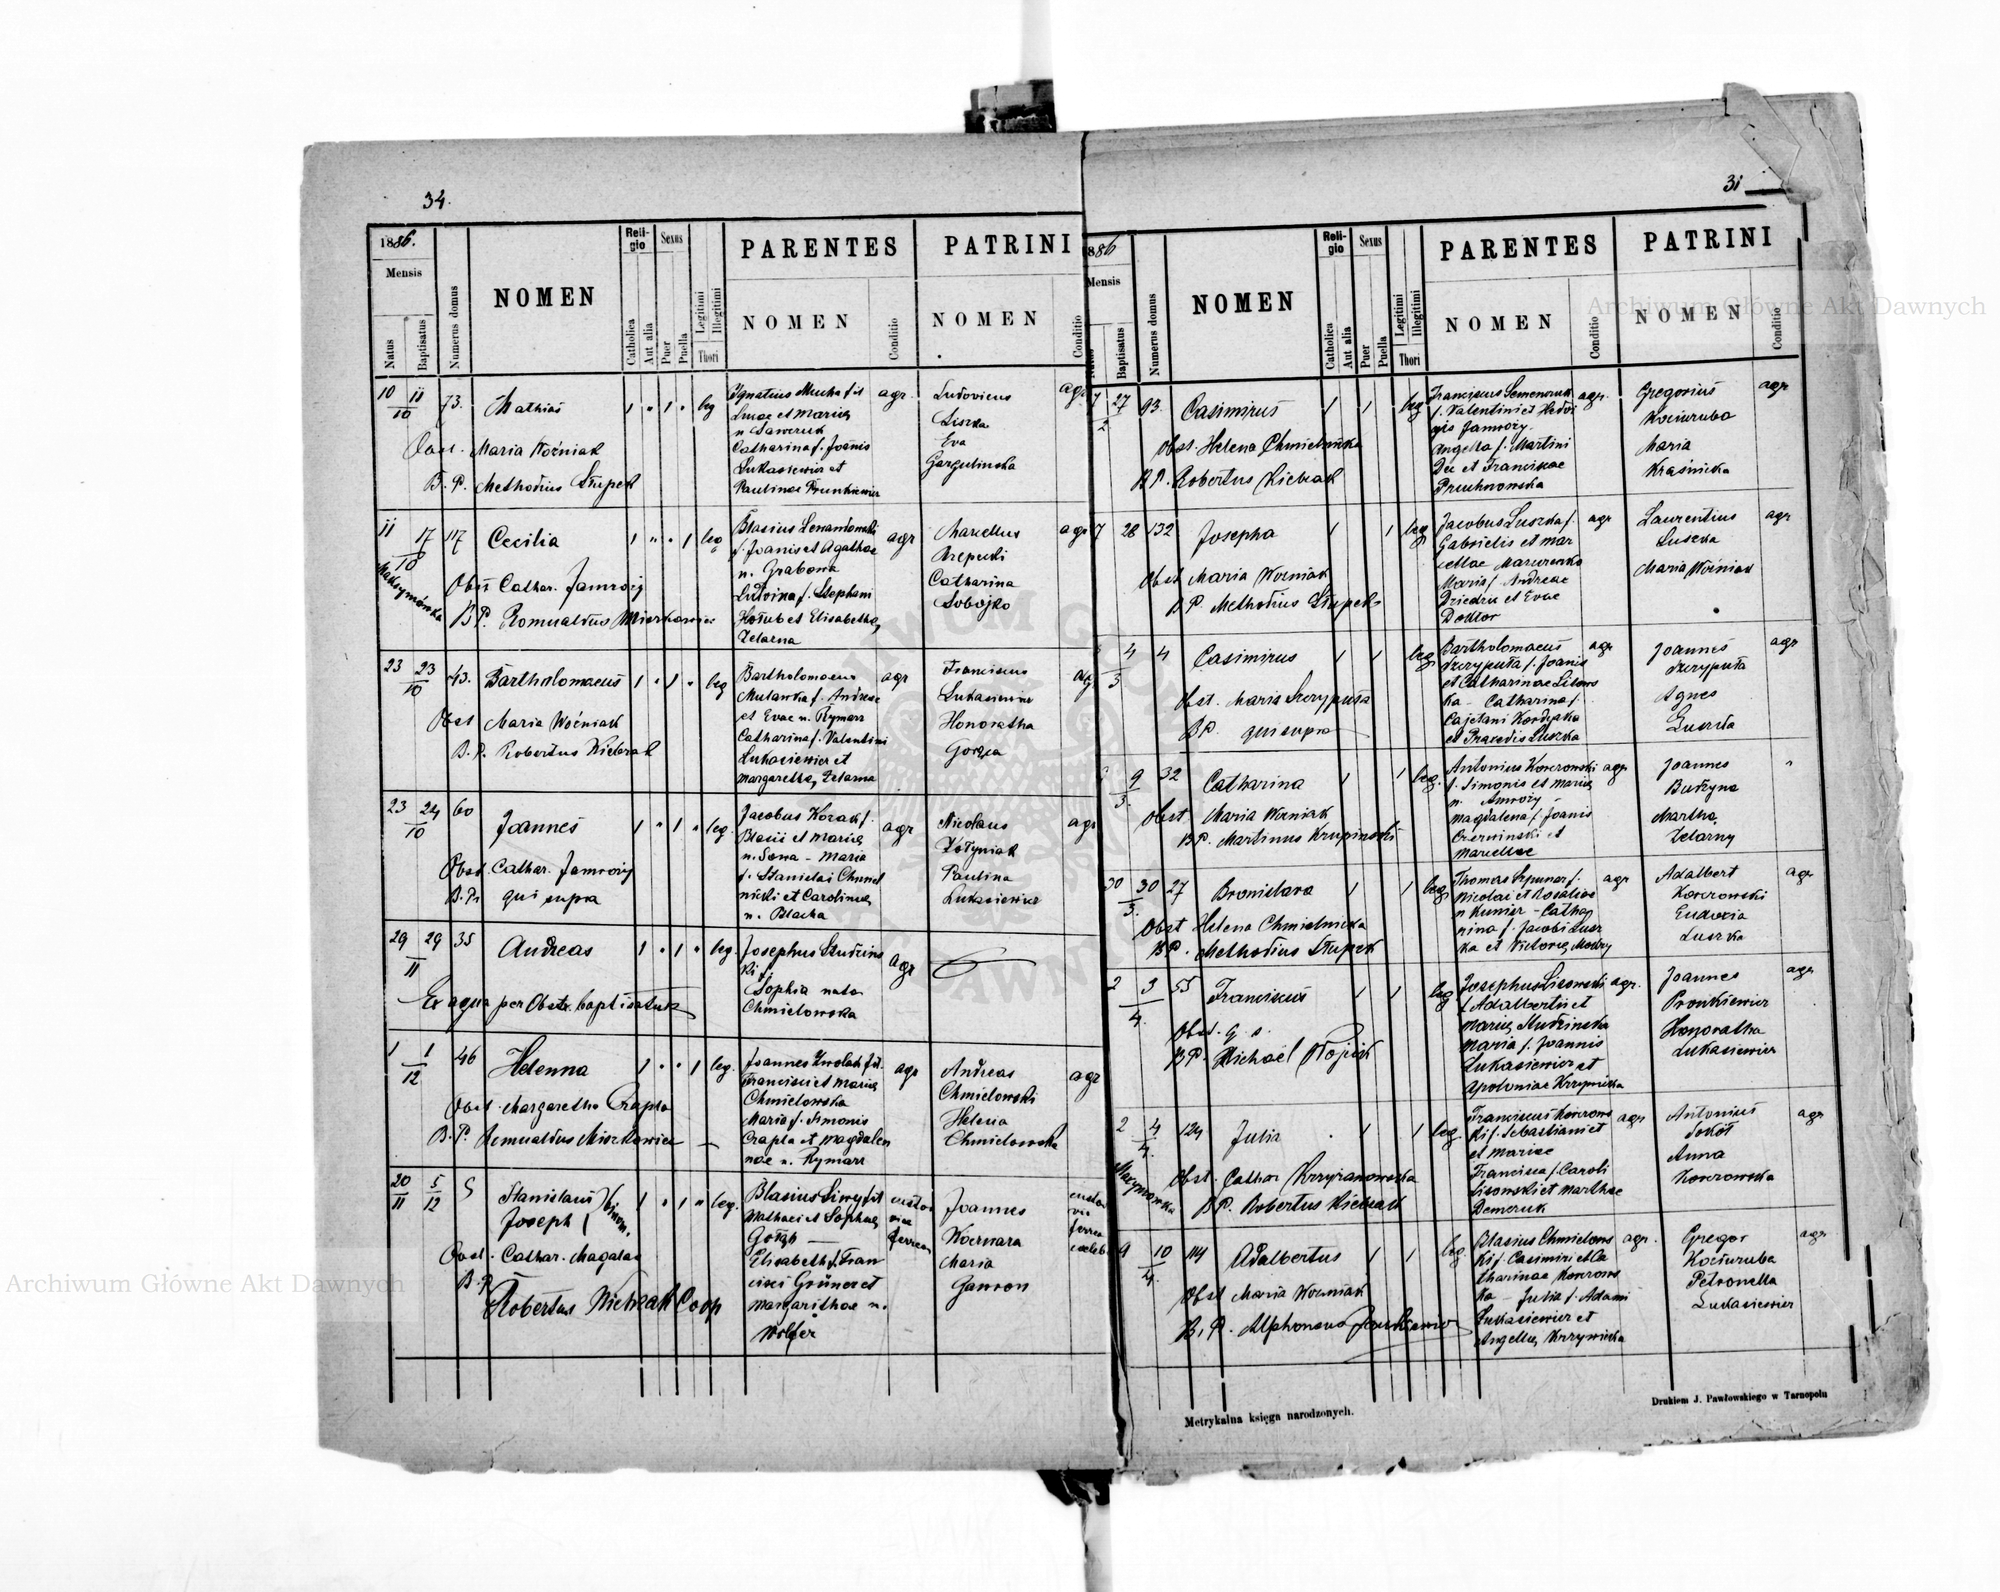 34.
1886.
Mensis
Natus
Baptisatus
Numerus domus
NOMEN
Reli-
gio
Catholica
Aut alia
Sexus
Puer
Puella
Legitimi
Illegitimi
Thori
PARENTES
NOMEN
Conditio
PATRINI
NOMEN
Conditio
10 11 73. Mathias 1 " 1 " leg
10
Obst. Maria Woźniak
B. P. Methodius Słupek
Ignatius Mucha fil
Lucae et Mariae
n Sawczuk
Catharina f. Joanis
Lukasiewicz et
agr.
Ludovicus
Liszka
Eva
agr
11 17 117 Cecilia 1 " " 1 leg
10
Maksymówka
Obst Cathar. Jamroży
B. P. Romualdus
f. Joanis et Agathae
n. Grabona
Ludvina f. Stephani
Hołub et Elisabetha
Zelarna
agr
Marcellus
Catharina
Sobojko
agr
23 23 43. Bartholomaeus 1 " 1 " leg
10
Obst Maria Woźniak
B. P. Robertus Kiebzak
Bartholomaeus
Mulawka f. Andreae
et Evae n. Rymarz
Catharina f. Valentini
Lukasiewicz et
Margaretha Zelarna
agr
Franciscus
Lukasiewicz
Honoratha
agr
23 24 60 Joannes 1 " 1 " leg.
10
Obst. Cathar. Jamroży
B. P. qui supra
Jacobus Kozak f.
Blasii et Mariae
n. Sowa - Maria
f. Stanislai Chmiel
nicki et Carolinae
n. Blacha
agr
Nicolaus
Paulina
Lukasiewicz
agr
29 29 35 Andreas 1 " 1 " leg.
11
Ex aqua per Obstr. baptisatus
Josephus Studzins
ki f
Sophia nata
Chmielowska
agr
1 1 46 Helenna 1 " " 1 leg.
12
Obst. Margaretha Czapla
B. P. Romualdus
Joannes Zwolak fil.
Francisci et Mariae
Chmielowska
Maria f. Simonis
Czapla et Magdalen
nae n. Rymarz
agr
Andreas
Chmielowski
Helena
Chmielowska
agr
20 5 5 Stanislaus
11 12 Joseph binom. 1 " 1 " leg.
Obst. Cathar. Magalas
B. P.
Robertus Kiebzak Coop
Mathaei et Sophiae
Elisabeth f. Fran
cisci Grüner et
Margarithae n.
Wolfer
Joannes
Maria
Gawron
31
1886
Mensis
Natus
Baptisatus
Numerus domus
NOMEN
Reli-
gio
Catholica
Aut alia
Sexus
Puer
Puella
Legitimi
Illegitimi
Thori
PARENTES
NOMEN
Conditio
PATRINI
NOMEN
Conditio
27 93. Casimirus 1 1 leg
2
Obst. Helena Chmielnicka
B P. Robertus Kiebzak
Franciscus Semenczuk
f. Valentini et Hedvi
gis Jamroży.
Angella f. Martini
Duc et Franciscae
Pruchnowska
agr.
Gregorius
Kociuruba
Maria
Kraśnicka
agr
28 132 Josepha 1 1 leg
Obst Maria Woźniak
B P. Methodius Słupek
Jacobus Luszka f.
Gabrielis et Mar
cellae Mazurenko
Maria f. Andreae
Dziedzic et Evae
Doktor
agr
Laurentius
Luszka
Maria Woźniak
agr
4 4 Casimirus 1 1 leg
3
Obst. Maria Szczyputa
B P. qui supra
Bartholomaeus
Szczyputa f. Joanis
et Catharinae Lisows
ka - Catharina f.
Cajetani Kordyaka
et Praxedis Luszka
agr
Joannes
Szczyputa
Agnes
Luszka
agr
9 32 Catharina 1 1 leg.
3.
Obst Maria Woźniak
B P. Martinus Krupinski
Antonius Korczowski
f. Simonis et Mariae
n. Amroży
Magdalena f. Joanis
Czerwinski et
Marcellae
agr
Joannes
Budzyna
Martha
Zelarny
"
30 30 27 Bronislava 1 1 leg
3.
Obst Helena Chmielnicka
B P. Methodius Słupek
Thomas Szpunar f.
Nicolai et Rosaliae
n Kumier - Catha
rina f. Jacobi Lusz
ka et Victoria Modry
agr
Adalbert
Korczowski
Eudoxia
Luszka
agr
2 3 55 Franciscus 1 1 leg
4.
Obst. q. s.
B P. Michael Wojcik
Josephus Lisowski
f. Adalberti et
Mariae Studzinska
Maria f. Joannis
Lukasiewicz et
Apoloniae Krzywicka
agr.
Joannes
Pronkiewicz
Honoratha
Lukasiewicz
agr
2 4 124 Julia 1 1 leg.
4.
Maxymowka
Obst. Cathar Krzyzanowska
B P. Robertus Kiebzak
Franciscus Korczows
ki f. Sebastiani et
et Mariae
Francisca f. Caroli
Lisowski et Marthae
Demczuk
agr
Antonius
Sokół
Anna
Korczowska
agr
9 10 114 Adalbertus 1 1 leg
4.
Obst Maria Woźniak
B. P. Alphonsus
Blasius Chmielows
ki f. Casimiri et Ca
tharinae Korczows
ka - Julia f. Adami
Lukasiewicz et
Angellae Krzywicka
agr.
Gregor
Kociuruba
Petronella
Lukasiewicz
agr
Metrykalna księga narodzonych.
Drukiem J. Pawłowskiego w Tarnopolu
Archiwum Główne Akt Dawnych
Archiwum Główne Akt Dawnych